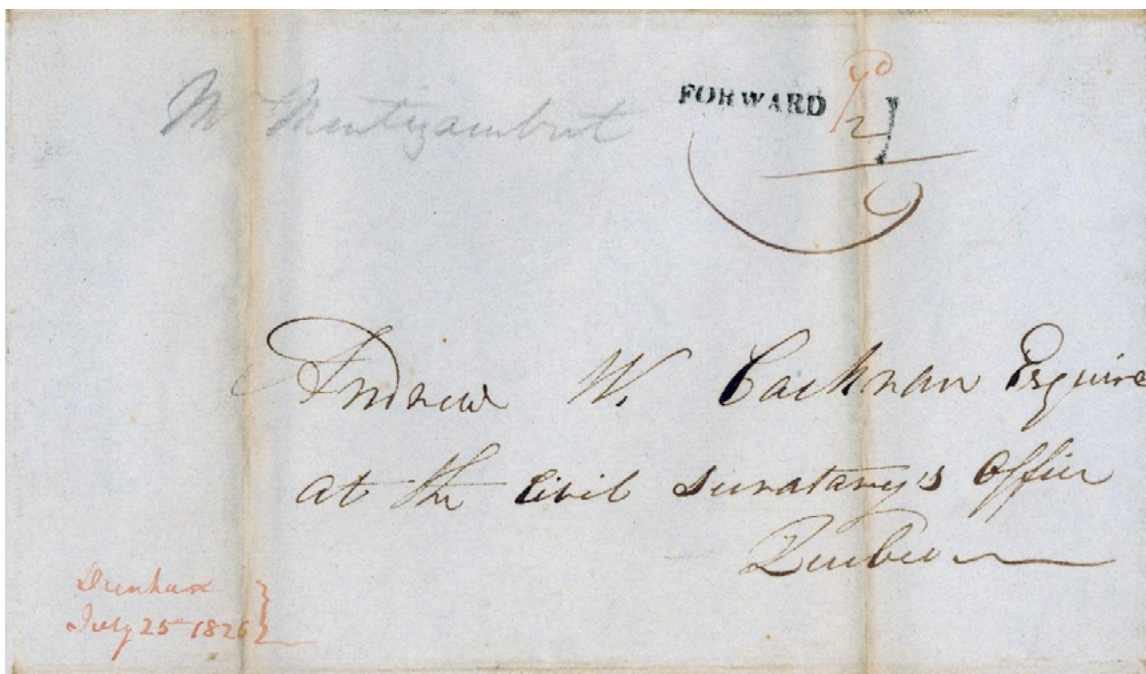 Mr Montizambert
FORWARD
Andrew W. Cochran Esquire
at the Civil Secretary's Office
Quebec
Dunham
July 25th 1826